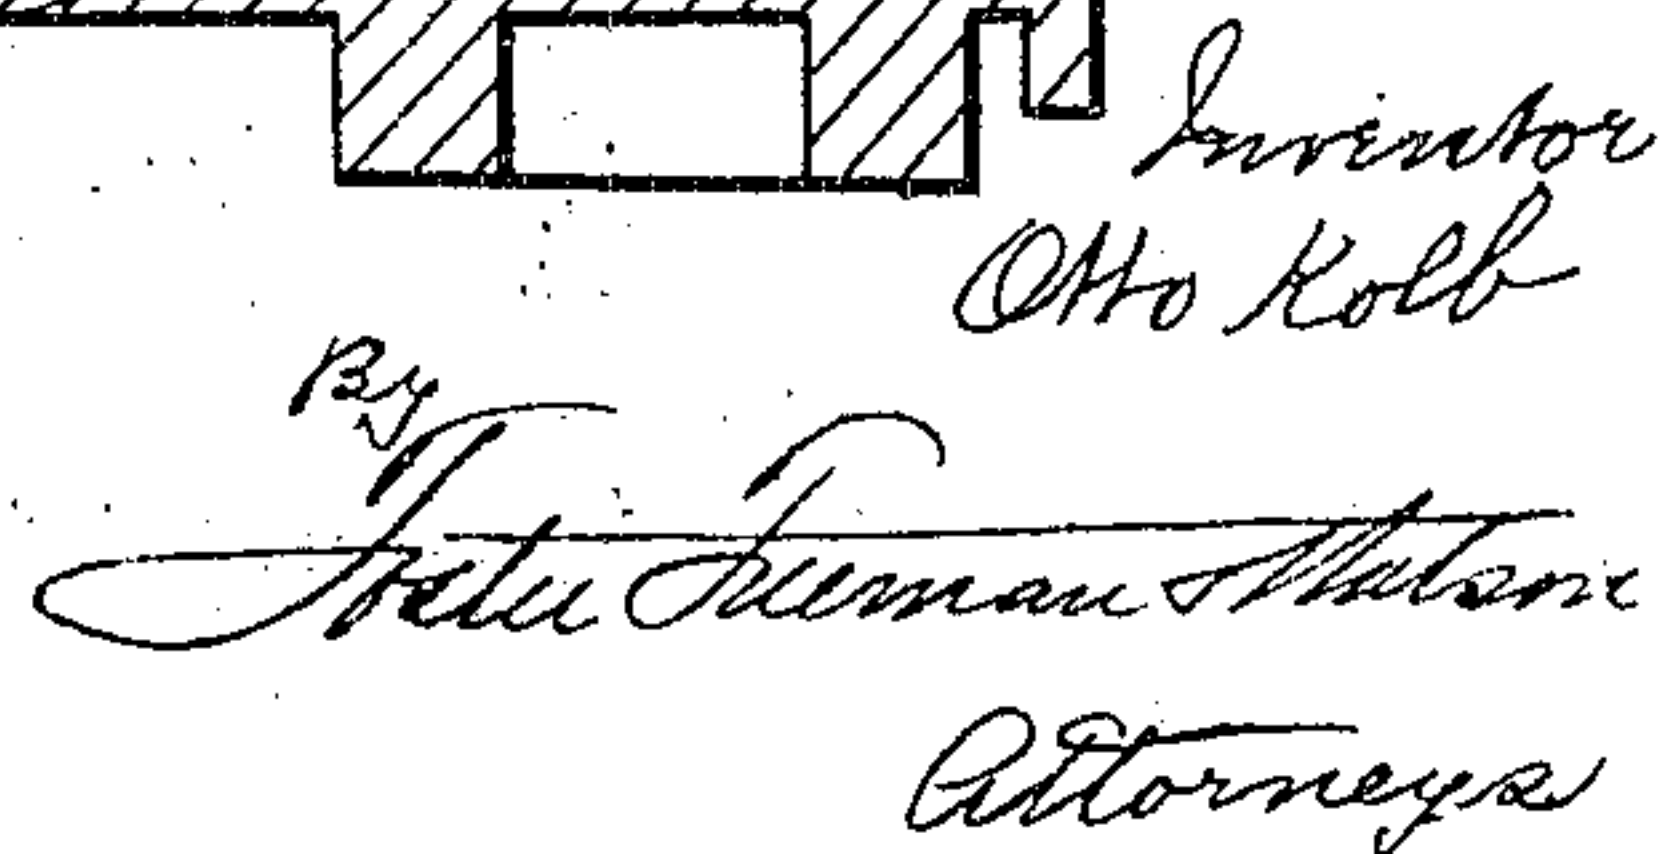 Inventor
Otto Kolb
By
Freeman & Watson
Attorneys